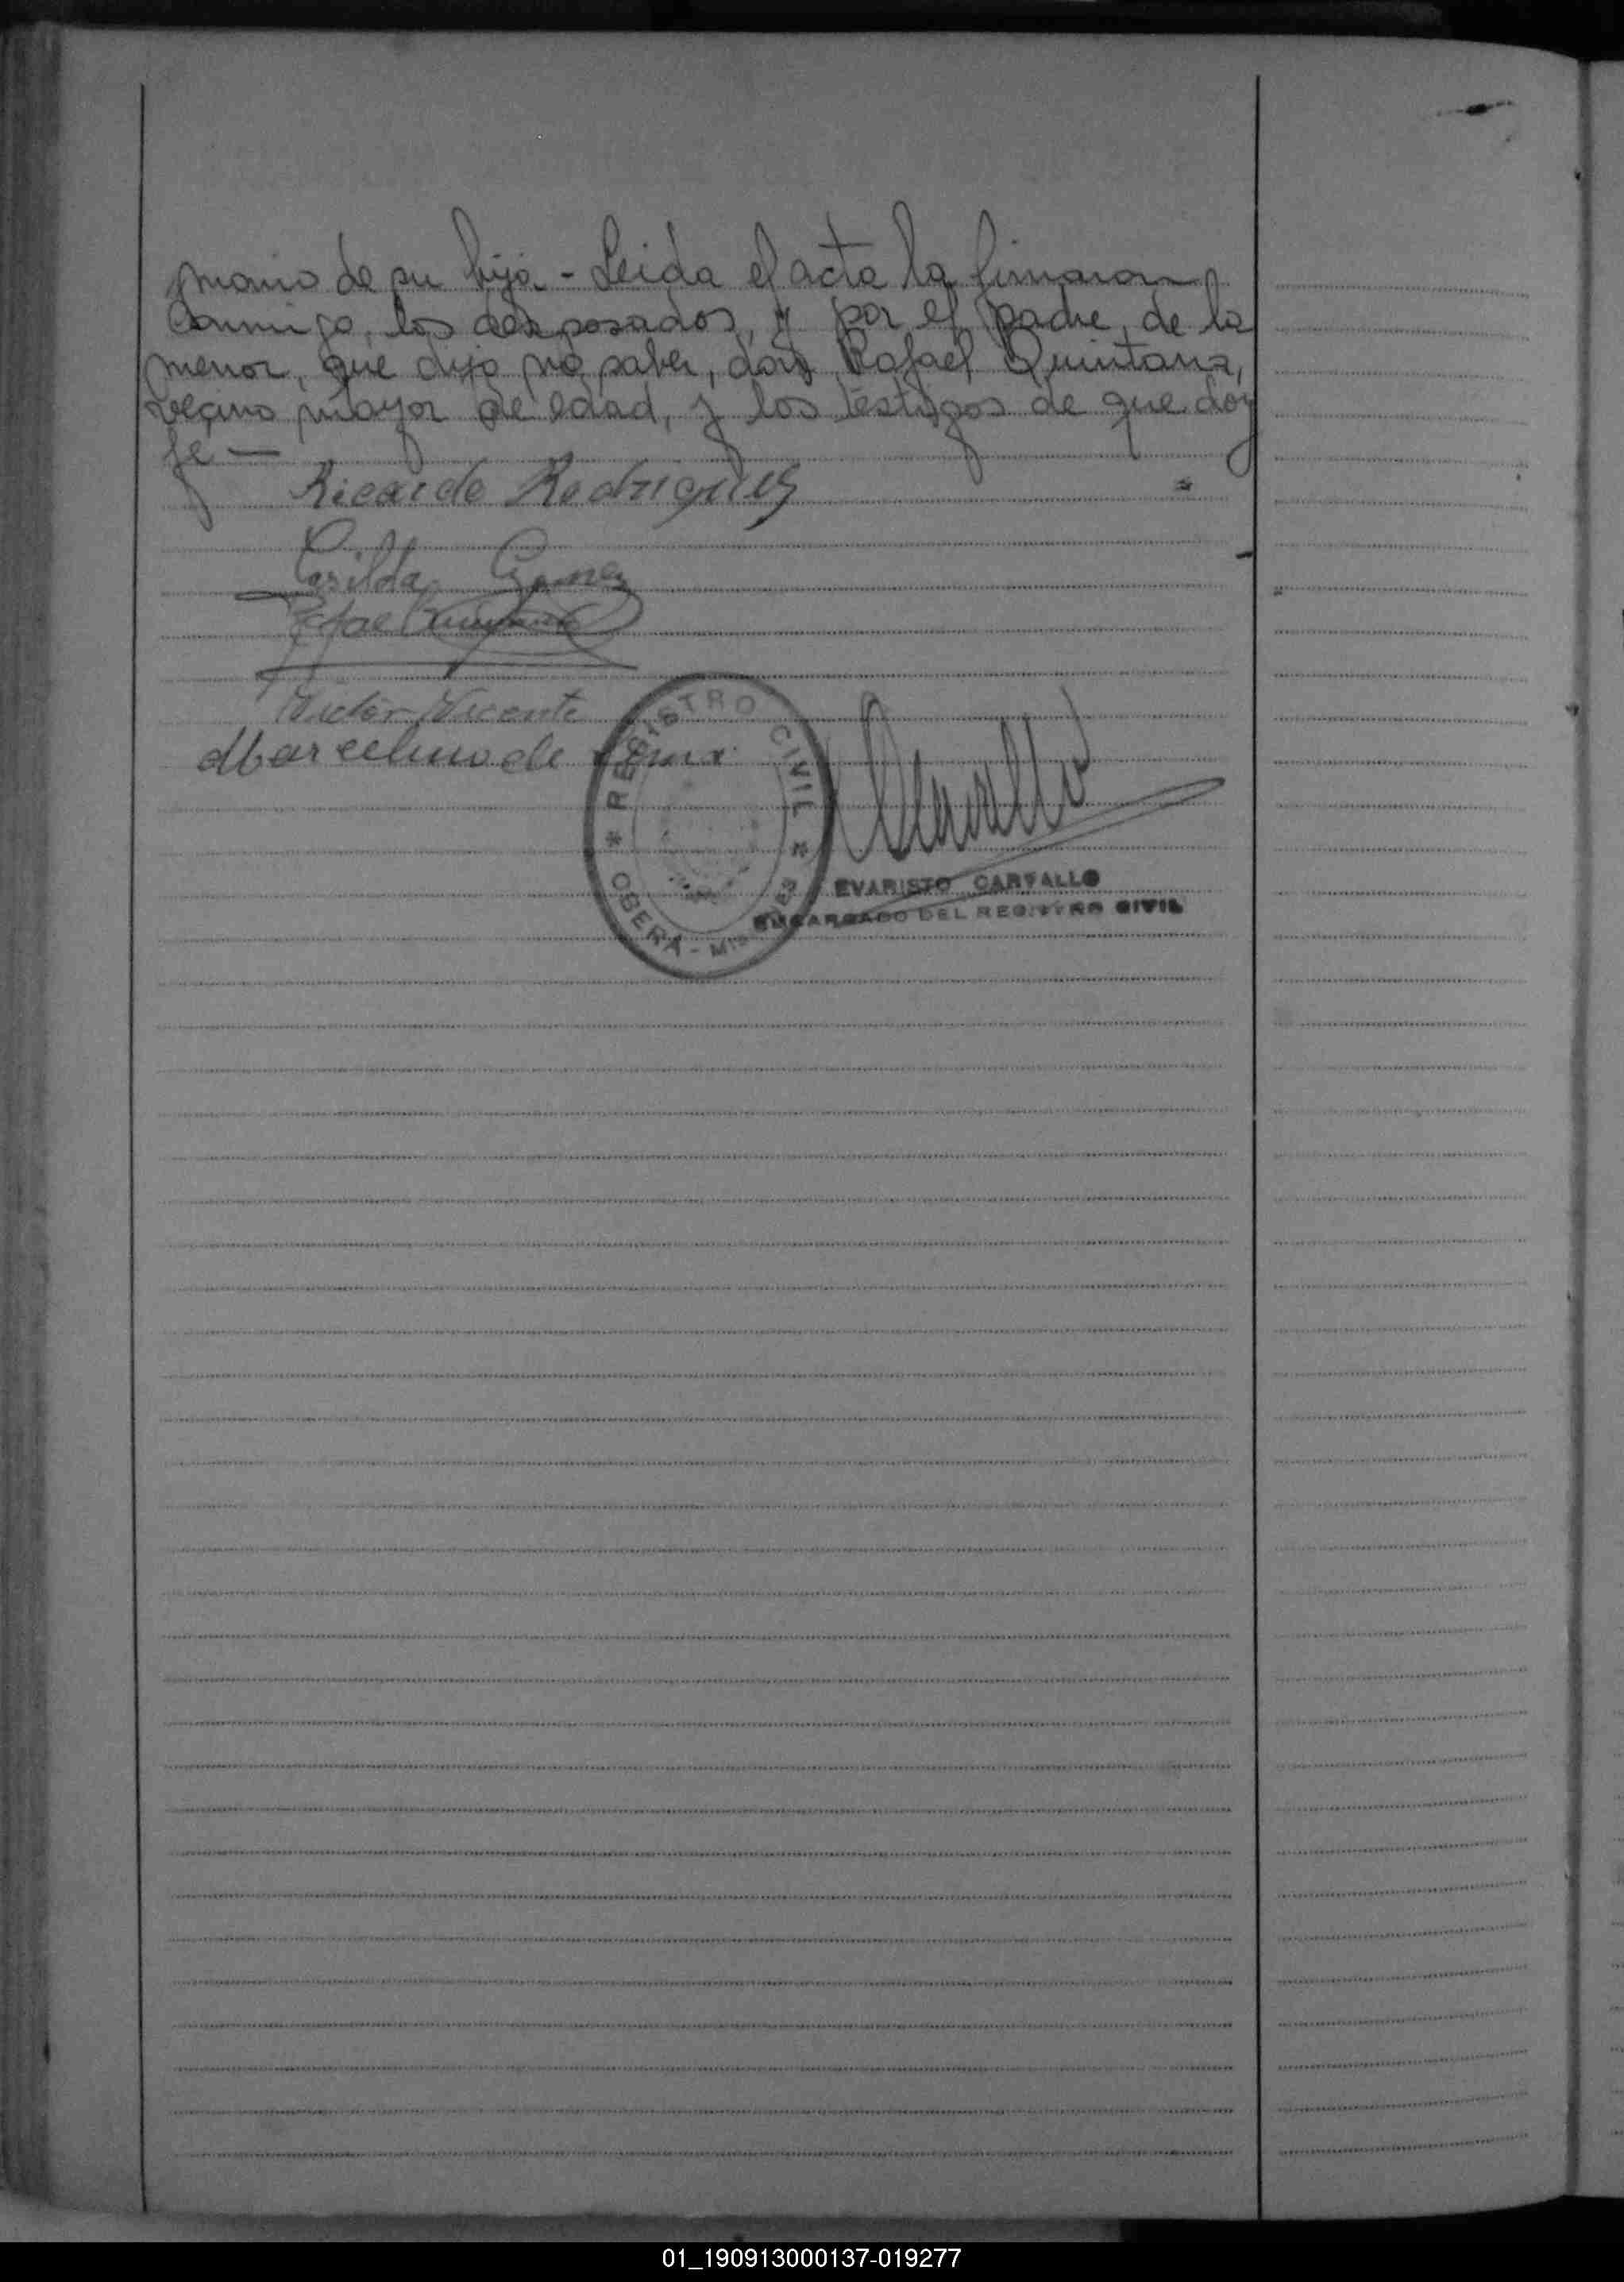 monio de su hija - Leida el acta la firmaron
conmigo, los desposados, y por el padre de la
menor, que dijo no saber, don Rafael Quintana,
vecino mayor de edad, y los testigos de que doy
fe —
Ricardo Rodrigues
Casilda Gomez
Rafael Quintana
Victor Vicente
Marcelino de
REGISTRO CIVIL
* *
OBERA - MISIONES
Carvallo
EVARISTO CARVALLO
ENCARGADO DEL REGISTRO CIVIL
01_190913000137-019277